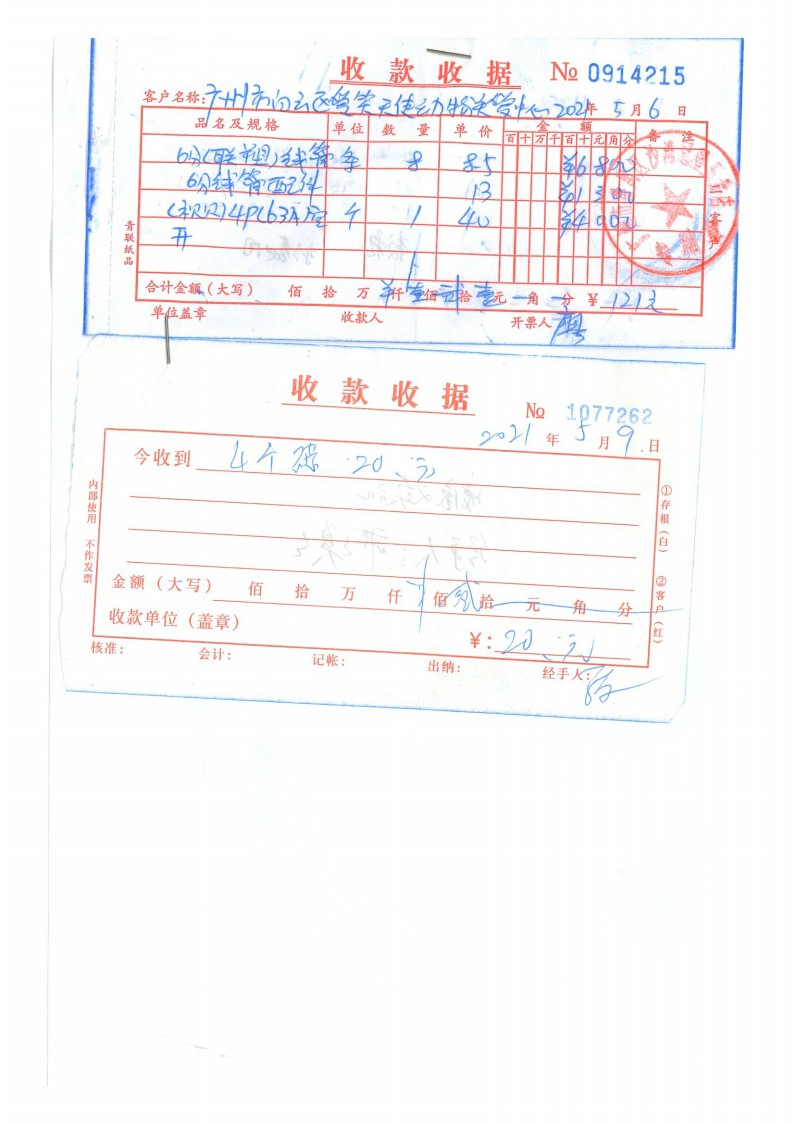 收款收据 № 0914215
客户名称: 广州市白云区 天使 2021年 5月 6日
品名及规格 单位 数量 单价 金额 备注
百十万千百十元角分
6分(联塑)线管 条 8 8.5 ¥6800
6分线管配件 13 ¥1300
4P(63A)空 个 1 40 ¥4000
开
合计金额(大写) 佰 拾 万 仟 壹佰 贰拾 壹元 角 分 ¥ 121元
单位盖章 收款人 开票人
青联纸品
二客户
收款收据
№ 1077262
2021年 5月 9日
今收到 4个 20元
金额(大写) 佰 拾 万 仟 佰 贰拾 元 角 分
收款单位(盖章)
¥: 20元
核准: 会计: 记帐: 出纳: 经手人:
内部使用 不作发票
①存根(白) ②客户(红)